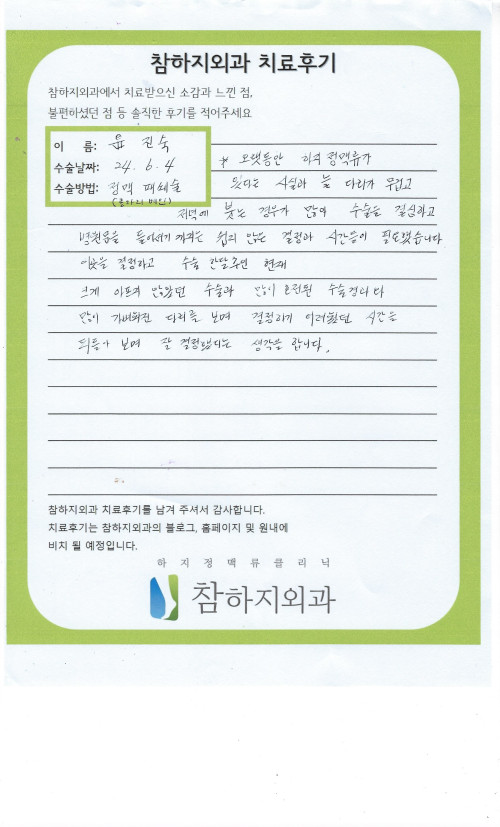 참하지외과 치료후기
참하지외과에서 치료받으신 소감과 느낀 점,
불편하셨던 점 등 솔직한 후기를 적어주세요
이 름: 윤 진숙
수술날짜: 24. 6. 4
수술방법: 정맥 폐쇄술
* 오랫동안 하지정맥류가
있다는 사실과 늘 다리가 무겁고
저녁에 붓는 경우가 많아 수술을 결심하고
병원문을 들어서기 까지는 쉽지 않는 결정과 시간들이 필요했습니다
수술 한달후인 현재
크게 아프지 않았던 수술과 많이 호전된
많이 가벼워진 다리를 보며 결정하기 어려웠던 시간을
보며 잘 결정했다는 생각을 합니다.
참하지외과 치료후기를 남겨 주셔서 감사합니다.
치료후기는 참하지외과의 블로그, 홈페이지 및 원내에
비치 될 예정입니다.
하지정맥류클리닉
참하지외과